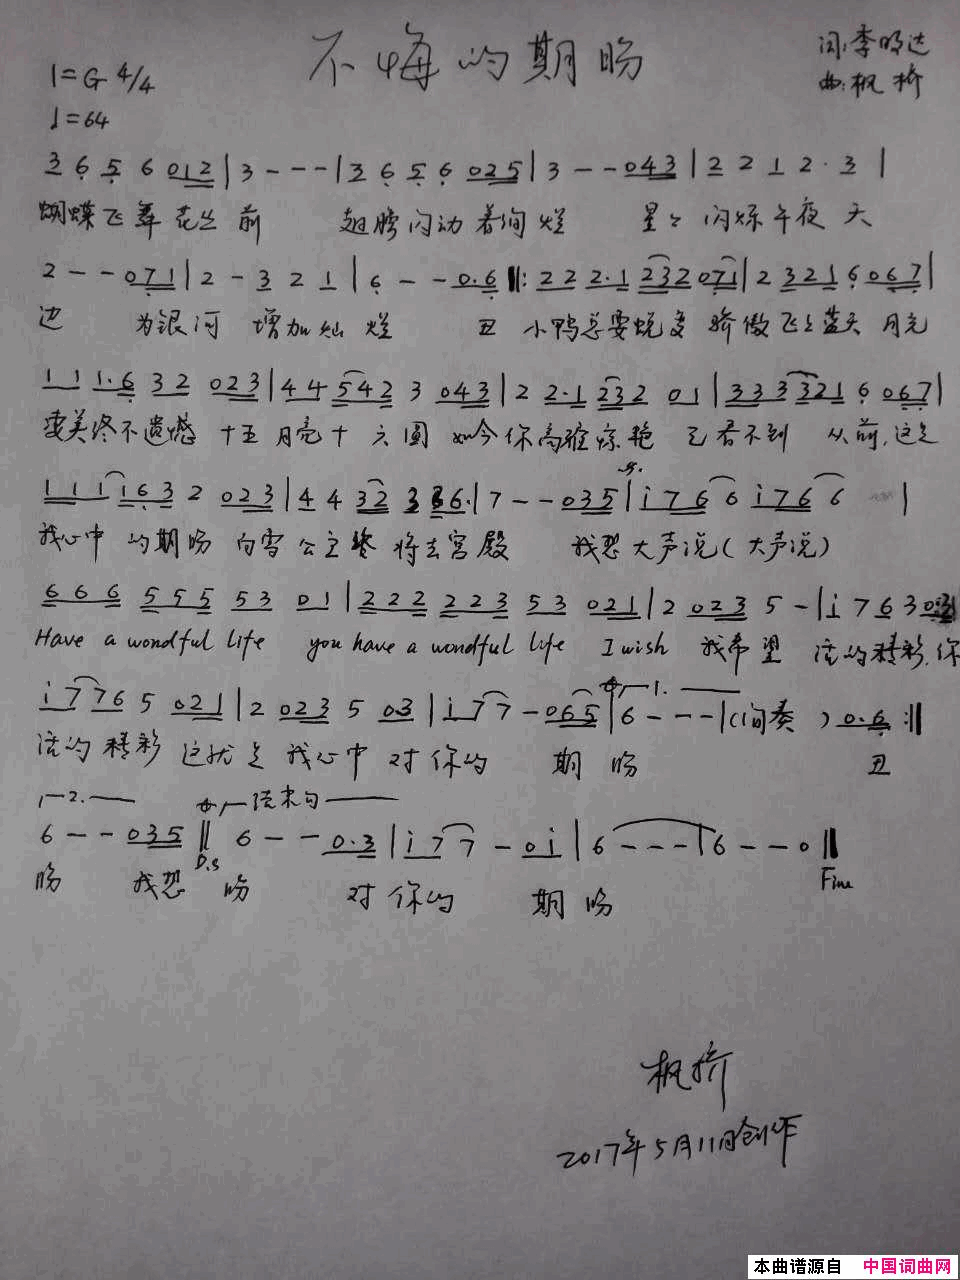 不悔的期盼
词:李明达
1=G 4/4
曲:枫桥
♩=64
3 6 5 6 012 | 3 - - - | 3 6 5 6 025 | 3 - - 043 | 2 2 1 2· 3 |
蝴蝶飞舞花丛前 翅膀闪动着绚烂 星星闪烁午夜天
2 - - 071 | 2 - 3 2 1 | 6 - - 0·6 ‖: 222 2·1 232 071 | 2 321 6 067 |
边 为银河增加灿烂 丑 小鸭总要蜕变 骄傲飞上蓝天 月光
11 1·6 32 023 | 44 542 3 043 | 2 2·1 232 01 | 333 321 6 067 |
变美终不遗憾 十五月亮十六圆 如今你高雅惊艳 已看不到 从前,这是
111 163 2 023 | 4 4 32 3 36· | 7 - - 035 | i76 6 i76 6 |
我心中的期盼 白雪公主终将去宫殿 我想大声说(大声说)
666 555 53 01 | 222 223 53 021 | 2 023 5 - | i 7 6 3 0·3 |
Have a wondful life you have a wondful life I wish 我希望 活的精彩,你
i7 76 5 021 | 2 023 5 03 | i7 7 - 065 | 6 - - - | (间奏) 0·6 :‖
1.
活的精彩 这就是我心中对你的期盼 丑
2. 结束句
6 - - 035 ‖ 6 - - 0·3 | i7 7 - 0i | 6 - - - | 6 - - 0 ‖
D.S Fine
盼 我想 盼 对你的 期盼
枫桥
2017年5月11日创作
本曲谱源自 中国词曲网